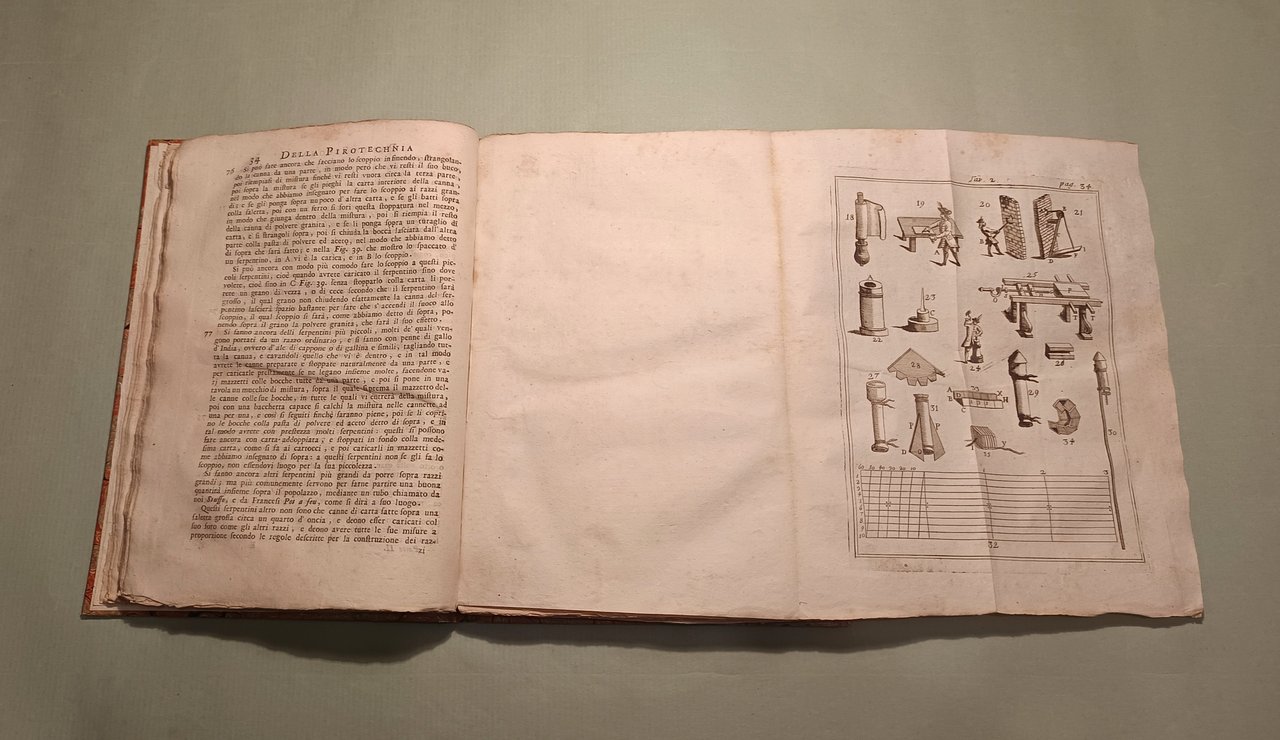 34 DELLA PIROTECHNIA
76 Si può fare ancora che facciano lo scoppio in finendo, strangolan-
do la canna da una parte, in modo però che vi resti il suo buco,
poi riempiasi di mistura finchè vi resti vuota circa la terza parte,
poi sopra la mistura se gli pieghi la carta interiore della canna,
nel modo che abbiamo insegnato per fare lo scoppio ai razzi gran-
di: e se gli ponga sopra un poco d'altra carta, e se gli batti sopra
colla saletta, poi con un ferro si fori questa stoppatura nel mezzo,
in modo che giunga dentro della mistura, poi si riempia il resto
della canna di polvere granita, e se li ponga sopra un turaglio di
carta, e si strangoli sopra, poi si chiusa la bocca lasciata dall'altra
parte colla pasta di polvere ed aceto, nel modo che abbiamo detto
di sopra che sarà fatto; e nella Fig. 39. che mostro lo spaccato d'
un serpentino, in A vi è la carica, e in B lo scoppio.
Si può ancora con modo più comodo fare lo scoppio a questi pic-
coli serpentini, cioè quando avrete caricato il serpentino sino dove
volete, cioè sino in C Fig. 39. senza stopparlo colla carta li por-
rete un grano di vezza, o di cece secondo che il serpentino sarà
grosso, il qual grano non chiudendo esattamente la canna del ser-
pentino lascierà spazio bastante per fare che s'accendi il fuoco allo
scoppio, il qual scoppio si farà, come abbiamo detto di sopra, po-
nendo sopra il grano la polvere granita, che farà il suo effetto.
77 Si fanno ancora delli serpentini più piccoli, molti de' quali ven-
gono portati da un razzo ordinario, e si fanno con penne di gallo
d'India, ovvero d'ale di cappone o di gallina e simili, tagliando tut-
ta la canna, e cavandoli quello che vi è dentro, e in tal modo
avrete le canne preparate e stoppate naturalmente da una parte, e
per caricarle prestamente se ne legano insieme molte, facendone va-
rj mazzetti colle bocche tutte da una parte, e poi si pone in una
tavola un mucchio di mistura, sopra il quale si prema il mazzetto del-
le canne colle sue bocche, in tutte le quali vi entrerà della mistura,
poi con una bacchetta capace si calchi la mistura nelle cannette ad
una per una, e così si seguiti finchè saranno piene, poi se li copri-
no le bocche colla pasta di polvere ed aceto detto di sopra, e in
tal modo avrete con prestezza molti serpentini: questi si possono
fare ancora con carta addoppiata, e stoppati in fondo colla mede-
sima carta, come si fa ai cartocci, e poi caricarli in mazzetti co-
me abbiamo insegnato di sopra: a questi serpentini non se gli fa lo
scoppio, non essendovi luogo per la sua piccolezza.
Si fanno ancora altri serpentini più grandi da porre sopra razzi
grandi; ma più comunemente servono per farne partire una buona
quantità insieme sopra il popolazzo, mediante un tubo chiamato da
noi Stuffa, e da Francesi Pot a feu, come si dirà a suo luogo.
Questi serpentini altro non sono che canne di carta fatte sopra una
saletta grossa circa un quarto d'oncia, e deono esser caricati col
suo foro come gli altri razzi, e deono avere tutte le sue misure a
proporzione secondo le regole descritte per la construzione dei raz-
zi
Tav. 2 pag. 34
18 19 20 21
A B A B D
22 23 C 24 25 26
27 28 29 30
31 P P D O
33 A B C X H
34
35 Y
60 50 40 30 20 10 1 2 3
1
2
3
4
5
6
7
8
9
10
32